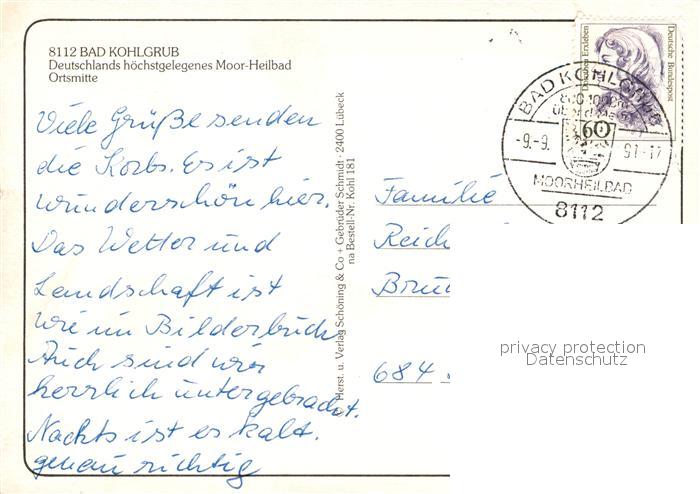 8112 BAD KOHLGRUB
Deutschlands höchstgelegenes Moor-Heilbad
Ortsmitte
Viele Grüße senden
die Korbs. Es ist
wunderschön hier.
Das Wetter und
Landschaft ist
wie im Bilderbuch
Auch sind wir
herrlich untergebracht.
Nachts ist es kalt.
genau richtig
Herst. u. Verlag Schöning & Co + Gebrüder Schmidt · 2400 Lübeck
na Bestell-Nr. Kohl 181
Dorothea Erxleben
Deutsche Bundespost
60
BAD KOHLGRUB
-9.-9.
91-17
MOORHEILBAD
8112
Familie
Reich
684
privacy protection
Datenschutz